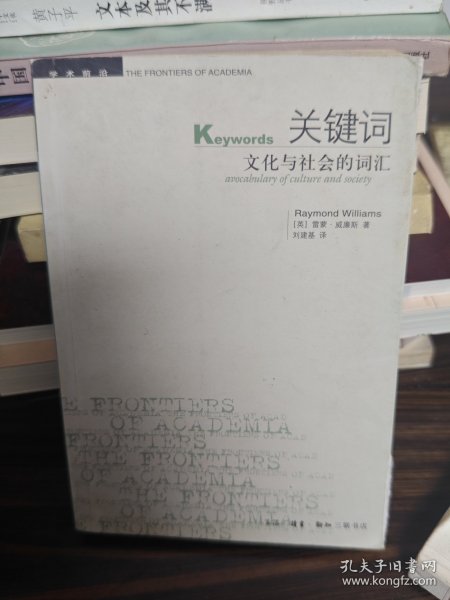 黄子平
文本及其不满
中国
学术前沿 THE FRONTIERS OF ACADEMIA
Keywords 关键词
文化与社会的词汇
avocabulary of culture and society
Raymond Williams
[英] 雷蒙·威廉斯 著
刘建基 译
E FRONTIERS
OF ACADEMIA
FRONTIERS
THE FRONTIERS
OF ACADEMIA
THE FRONTIERS
OF ACADEMIA
生活·读书·新知 三联书店
孔夫子旧书网
www.kongfz.com